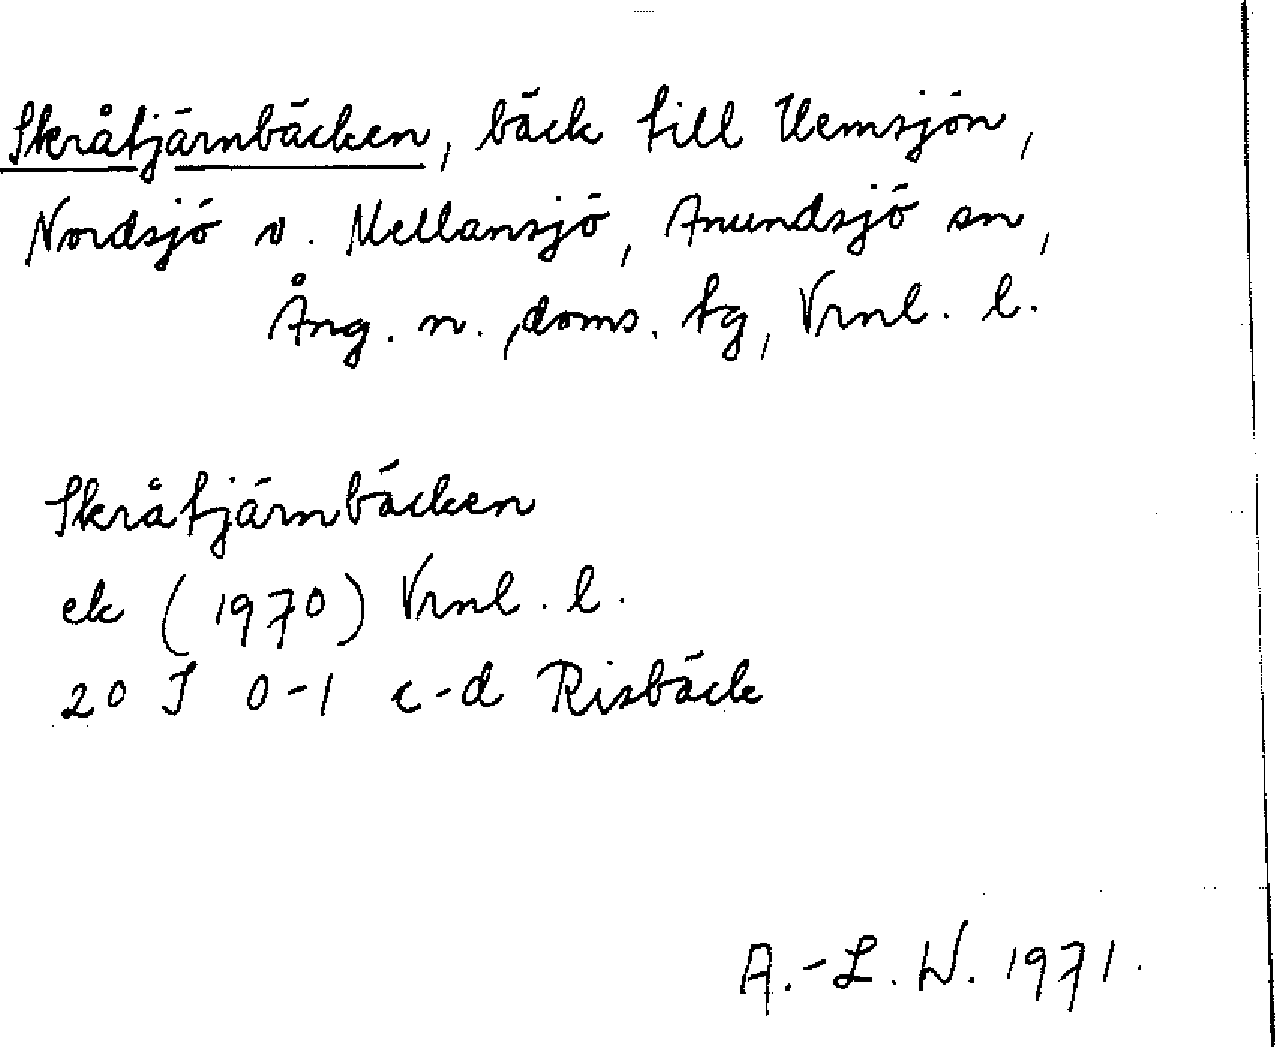 Skråtjärnbäcken, bäck till Uemsjön,
Nordsjö o. Mellansjö, Anundsjö sn,
Ång. n. ,doms. tg, Vrnl. l.
Skråtjärnbäcken
ek (1970) Vrnl. l.
20 J 0-1 c-d Risbäck
A.-L. W. 1971.